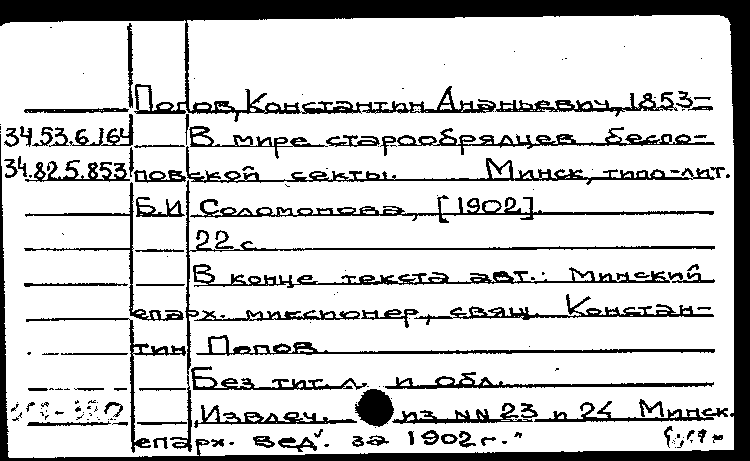 Попов, Константин Ананьевич, 1853-
34.53.6.164 В мире старообрядцев беспо-
34.82.5.853 повской секты. Минск, типо-лит.
Б.И Соломонова, [1902].
22 с.
В конце текста авт.: минский
епарх. миссионер, свящ. Констан-
тин Попов.
Без тит. л. и обл.
„Извлеч. из NN 23 и 24 Минск.
епарх. вед". за 1902 г."